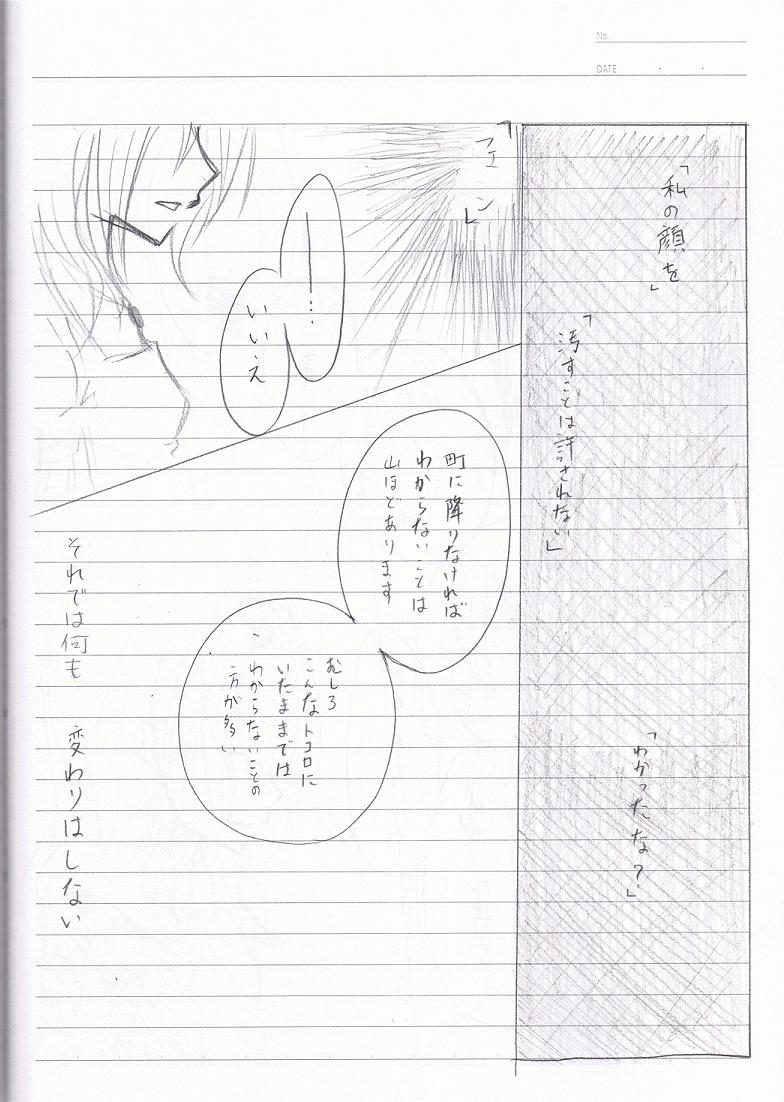 No.
DATE
「私の顔を」
「汚すことは許されない」
「わかったな?」
「フェン」
―…
いいえ
町に降りなければ
わからないことは
山ほどあります
むしろ
こんなトコロに
いたままでは
わからないことの
方が多い
それでは何も 変わりはしない